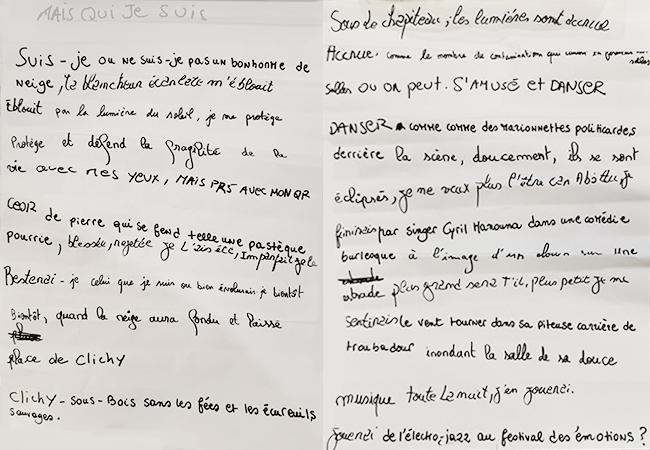 MAIS QUI JE SUIS
Suis-je ou ne suis-je pas un bonhomme de
neige, la blancheur écarlate m'éblouit
Éblouit par la lumière du soleil, je me protège
Protège et défend la fragilité de la
vie avec mes yeux, MAIS PAS AVEC MON QR
COEUR de pierre qui se fend telle une pastèque
pourrie, blessée, rejetée je l'ai été, Imparfait je le
Resterai-je celui que je suis ou bien évoluerai-je bientôt
Bientôt, quand la neige aura fondu et laissé
place de CLICHY
CLICHY-SOUS-BOIS sans les fées et les écureuils
sauvages.
Sous le chapiteau, les lumières sont accrue
Accrue. comme le nombre de contamination qui
Salles OU ON PEUT. S'AMUSÉ ET DANSER
DANSER comme comme des marionnettes politicardes
derrière la scène, doucement, ils se sont
éclipsés, je ne veux plus l'être car Abattu je
finirais par singer Cyril Hanouna dans une comédie
burlesque à l'image d'un clown sur une
plus grand sera t'il, plus petit je me
sentirais le vent tourner dans sa piteuse carrière de
troubadour inondant la salle de sa douce
musique toute la nuit, j'en jouerai.
Jouerai de l'électro-jazz au festival des émotions ?